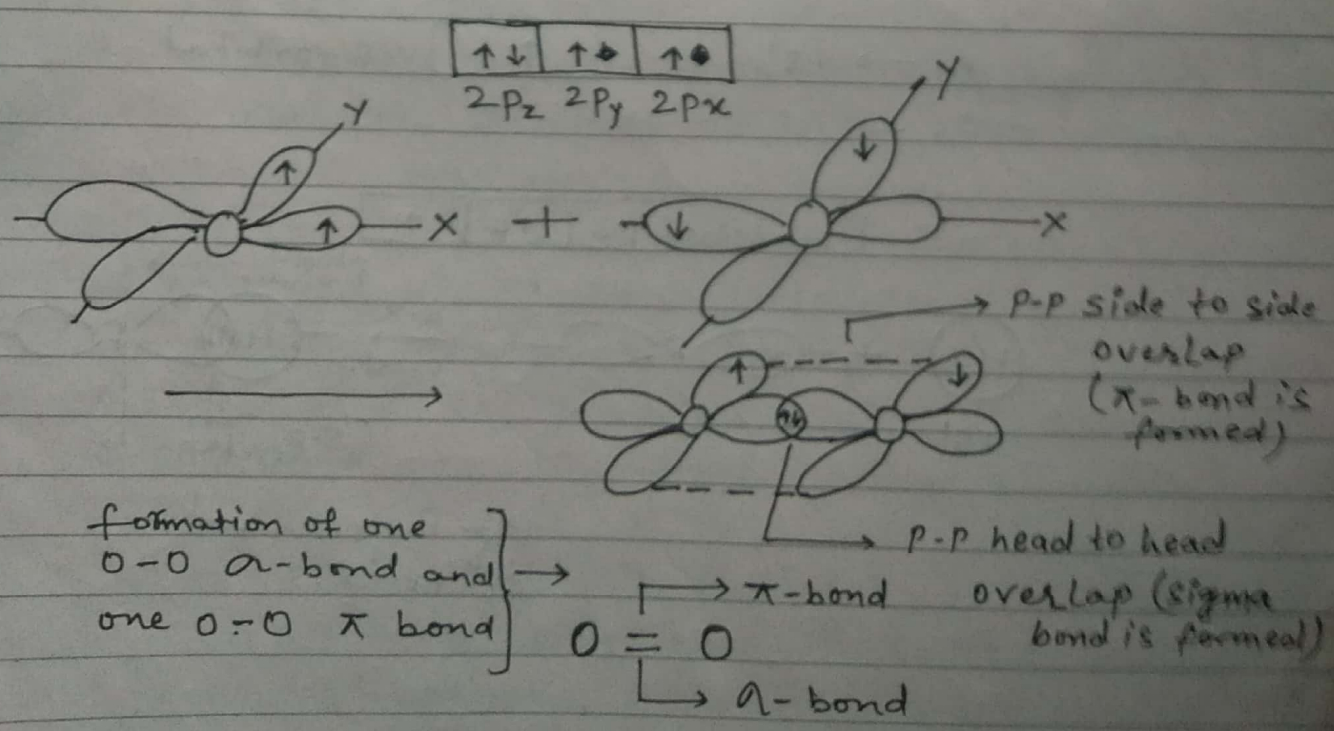 ↑↓ ↑ ↑
2pz 2py 2px
Y
↑
↑
X
+
Y
↓
↓
X
p-p side to side
overlap
(π-bond is
formed)
↑
↓
↑↓
p-p head to head
overlap (sigma
bond is formed)
formation of one
O-O σ-bond and
one O-O π bond
π-bond
O = O
σ-bond